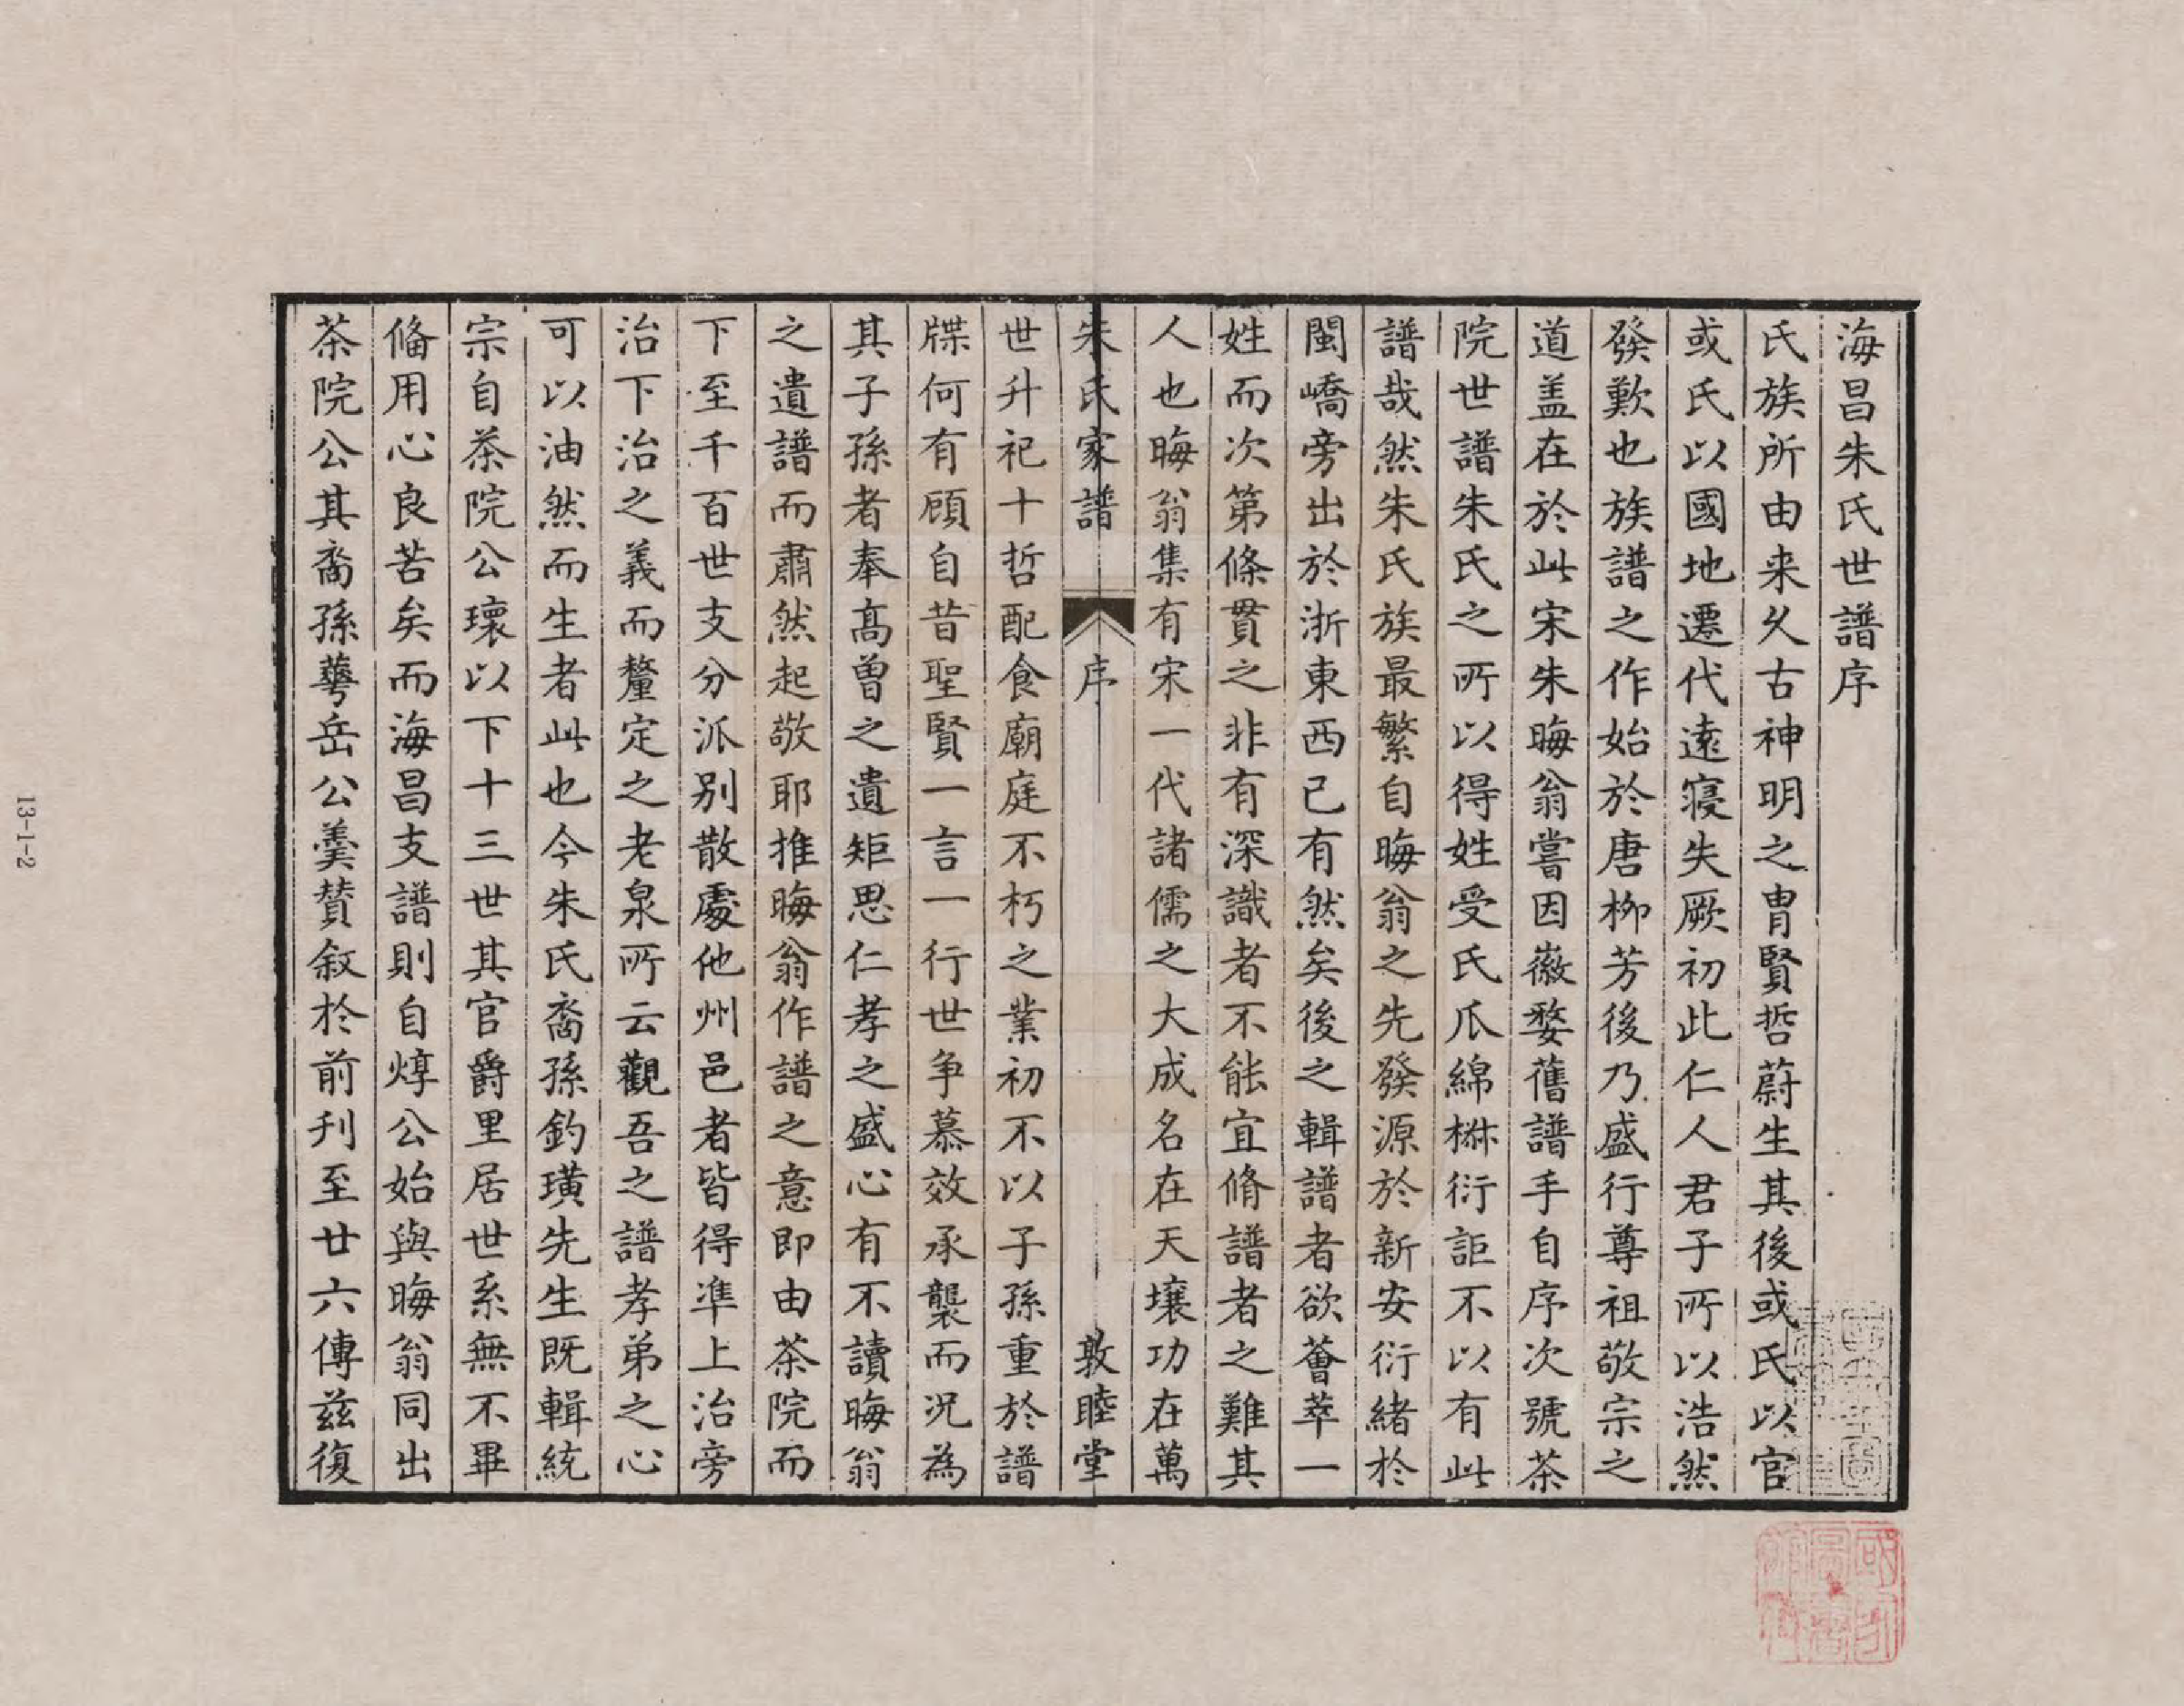 海昌朱氏世譜序
氏族所由来久古神明之胄賢哲蔚生其後或氏以官
或氏以國地遷代遠寖失厥初此仁人君子所以浩然
發歎也族譜之作始於唐柳芳後乃盛行尊祖敬宗之
道盖在於此宋朱晦翁嘗因徽婺舊譜手自序次號茶
院世譜朱氏之所以得姓受氏瓜綿椒衍詎不以有此
譜哉然朱氏族最繁自晦翁之先發源於新安衍緒於
閩嶠旁出於浙東西已有然矣後之輯譜者欲薈萃一
姓而次第條貫之非有深識者不能宜脩譜者之難其
人也晦翁集有宋一代諸儒之大成名在天壤功在萬
朱氏家譜 序 敦睦堂
世升祀十哲配食廟庭不朽之業初不以子孫重於譜
牒何有顧自昔聖賢一言一行世争慕效承襲而况為
其子孫者奉髙曽之遺矩思仁孝之盛心有不讀晦翁
之遺譜而肅然起敬耶推晦翁作譜之意即由茶院而
下至千百世支分派别散處他州邑者皆得準上治旁
治下治之義而釐定之老泉所云觀吾之譜孝弟之心
可以油然而生者此也今朱氏裔孫釣璜先生既輯統
宗自茶院公瓌以下十三世其官爵里居世系無不畢
俻用心良苦矣而海昌支譜則自焞公始與晦翁同出
茶院公其裔孫蕚岳公羹賛敘於前刋至廿六傳兹復
13-1-2